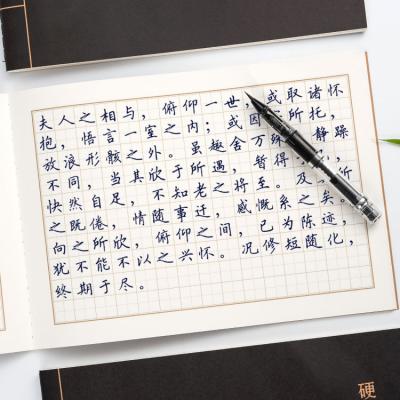 夫人之相与，俯仰一世，或取诸怀
抱，悟言一室之内；或因所托，
放浪形骸之外。虽趣舍万殊，静躁
不同，当其欣于所遇，暂得
快然自足，不知老之将至。及所
之既倦，情随事迁，感慨系之矣。
向之所欣，俯仰之间，已为陈迹，
犹不能不以之兴怀。况修短随化，
终期于尽。
硬